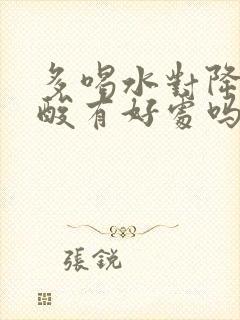 多喝水對降
酸有好處嗎
張銳